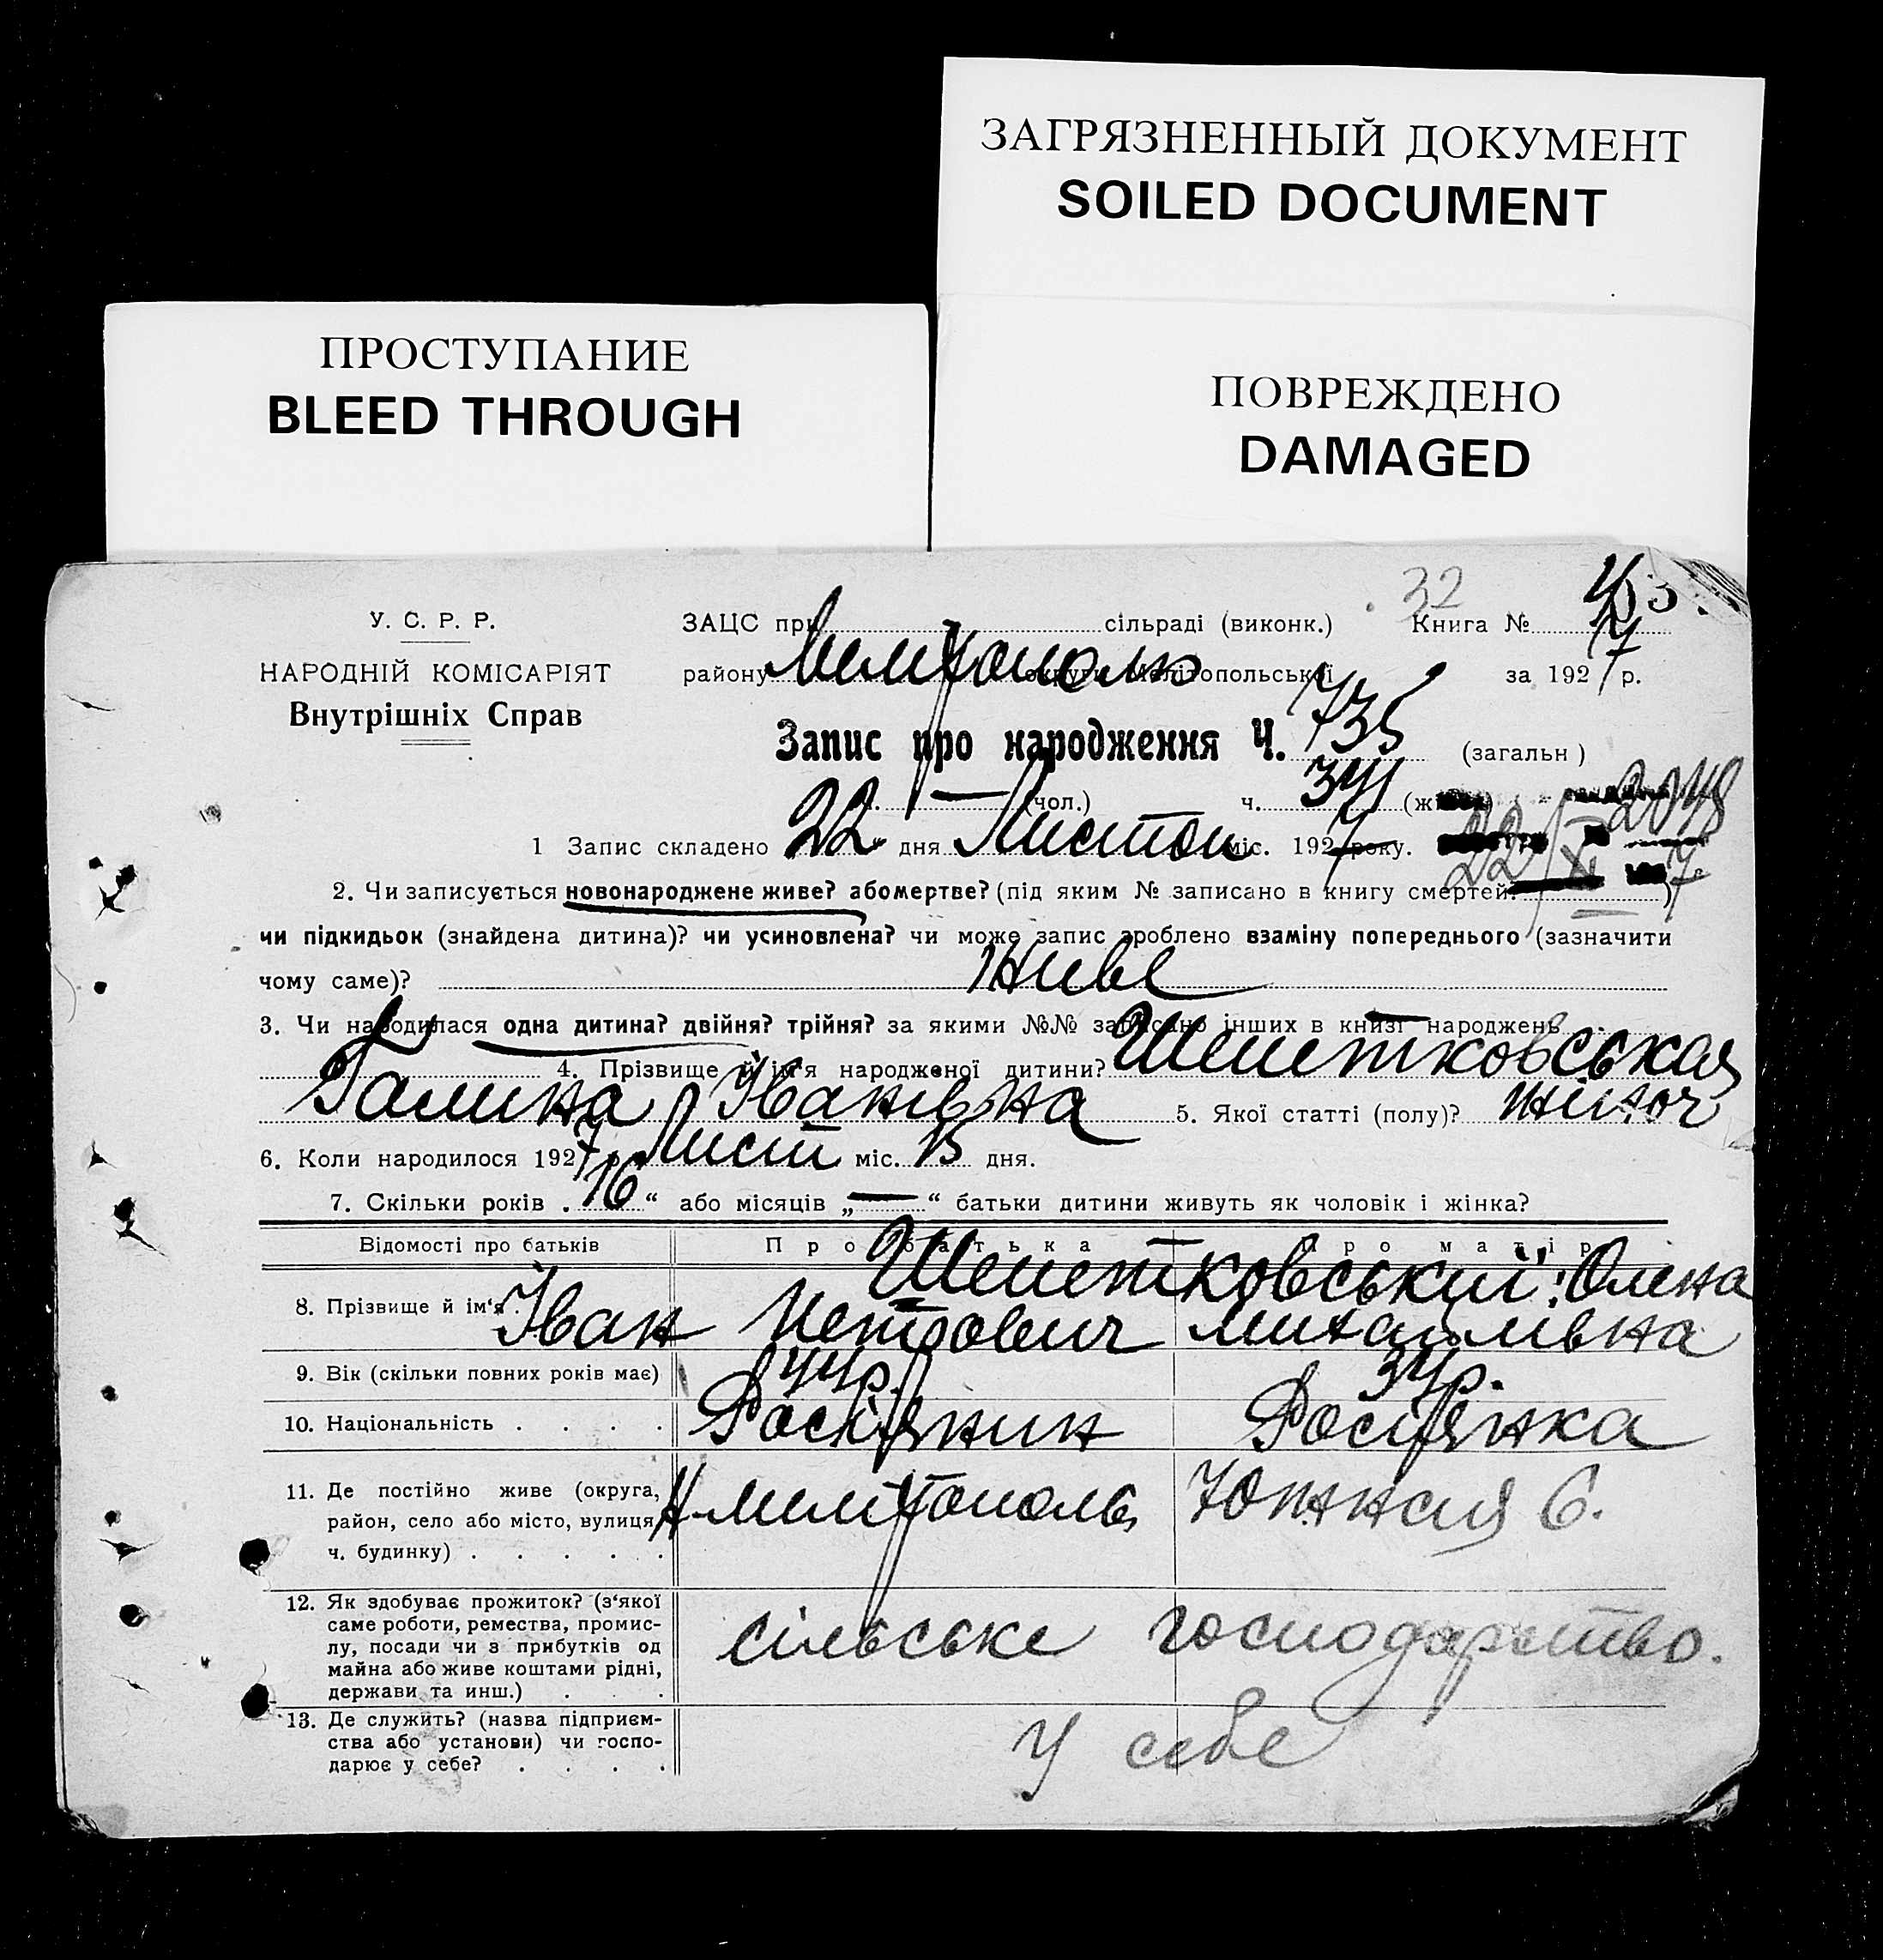 ЗАГРЯЗНЕННЫЙ ДОКУМЕНТ
SOILED DOCUMENT
ПРОСТУПАНИЕ
BLEED THROUGH
ПОВРЕЖДЕНО
DAMAGED
32
У. С. Р. Р.
ЗАЦС при сільраді (виконк.) Книга №
НАРОДНІЙ КОМІСАРІЯТ
Внутрішніх Справ
району Мелітополь округи Мелітопольської за 1927 р.
Запис про народження Ч. 735 (загальн)
— (чол.) ч. 341
1 Запис складено 22 дня Листоп міс. 1927 року. 22/XI 7.
2. Чи записується новонароджене живе? або мертве? (під яким № записано в книгу смертей. )
чи підкидьок (знайдена дитина)? чи усиновлена? чи може запис зроблено взаміну попереднього (зазначити
чому саме)? Живе
3. Чи народилася одна дитина? двійня? трійня? за якими №№ записано інших в книзі народжень
4. Прізвище й ім'я народженої дитини? Шепетковськая
Галина Іванівна 5. Якої статті (полу)? жіноч
6. Коли народилося 1927 р. Лист міс. 15 дня.
7. Скільки років . 16 “ або місяців „ — “ батьки дитини живуть як чоловік і жінка?
Відомості про батьків Про батька Про матір
8. Прізвище й ім'я . Шепетковський: Олена
Іван Петрович Михайлівна
9. Вік (скільки повних років має) 44р. 34р.
10. Національність . . . . Росіянин Росіянка
11. Де постійно живе (округа,
район, село або місто, вулиця,
ч. будинку) . . . . . Н-Мелітополь Южная 6.
12. Як здобуває прожиток? (з'якої
саме роботи, ремества, промис-
лу, посади чи з прибутків од
майна або живе коштами рідні,
держави та инш.) . . . сільське господарство.
13. Де служить? (назва підприєм-
ства або установи) чи госпо-
дарює у себе? . . . . У себе